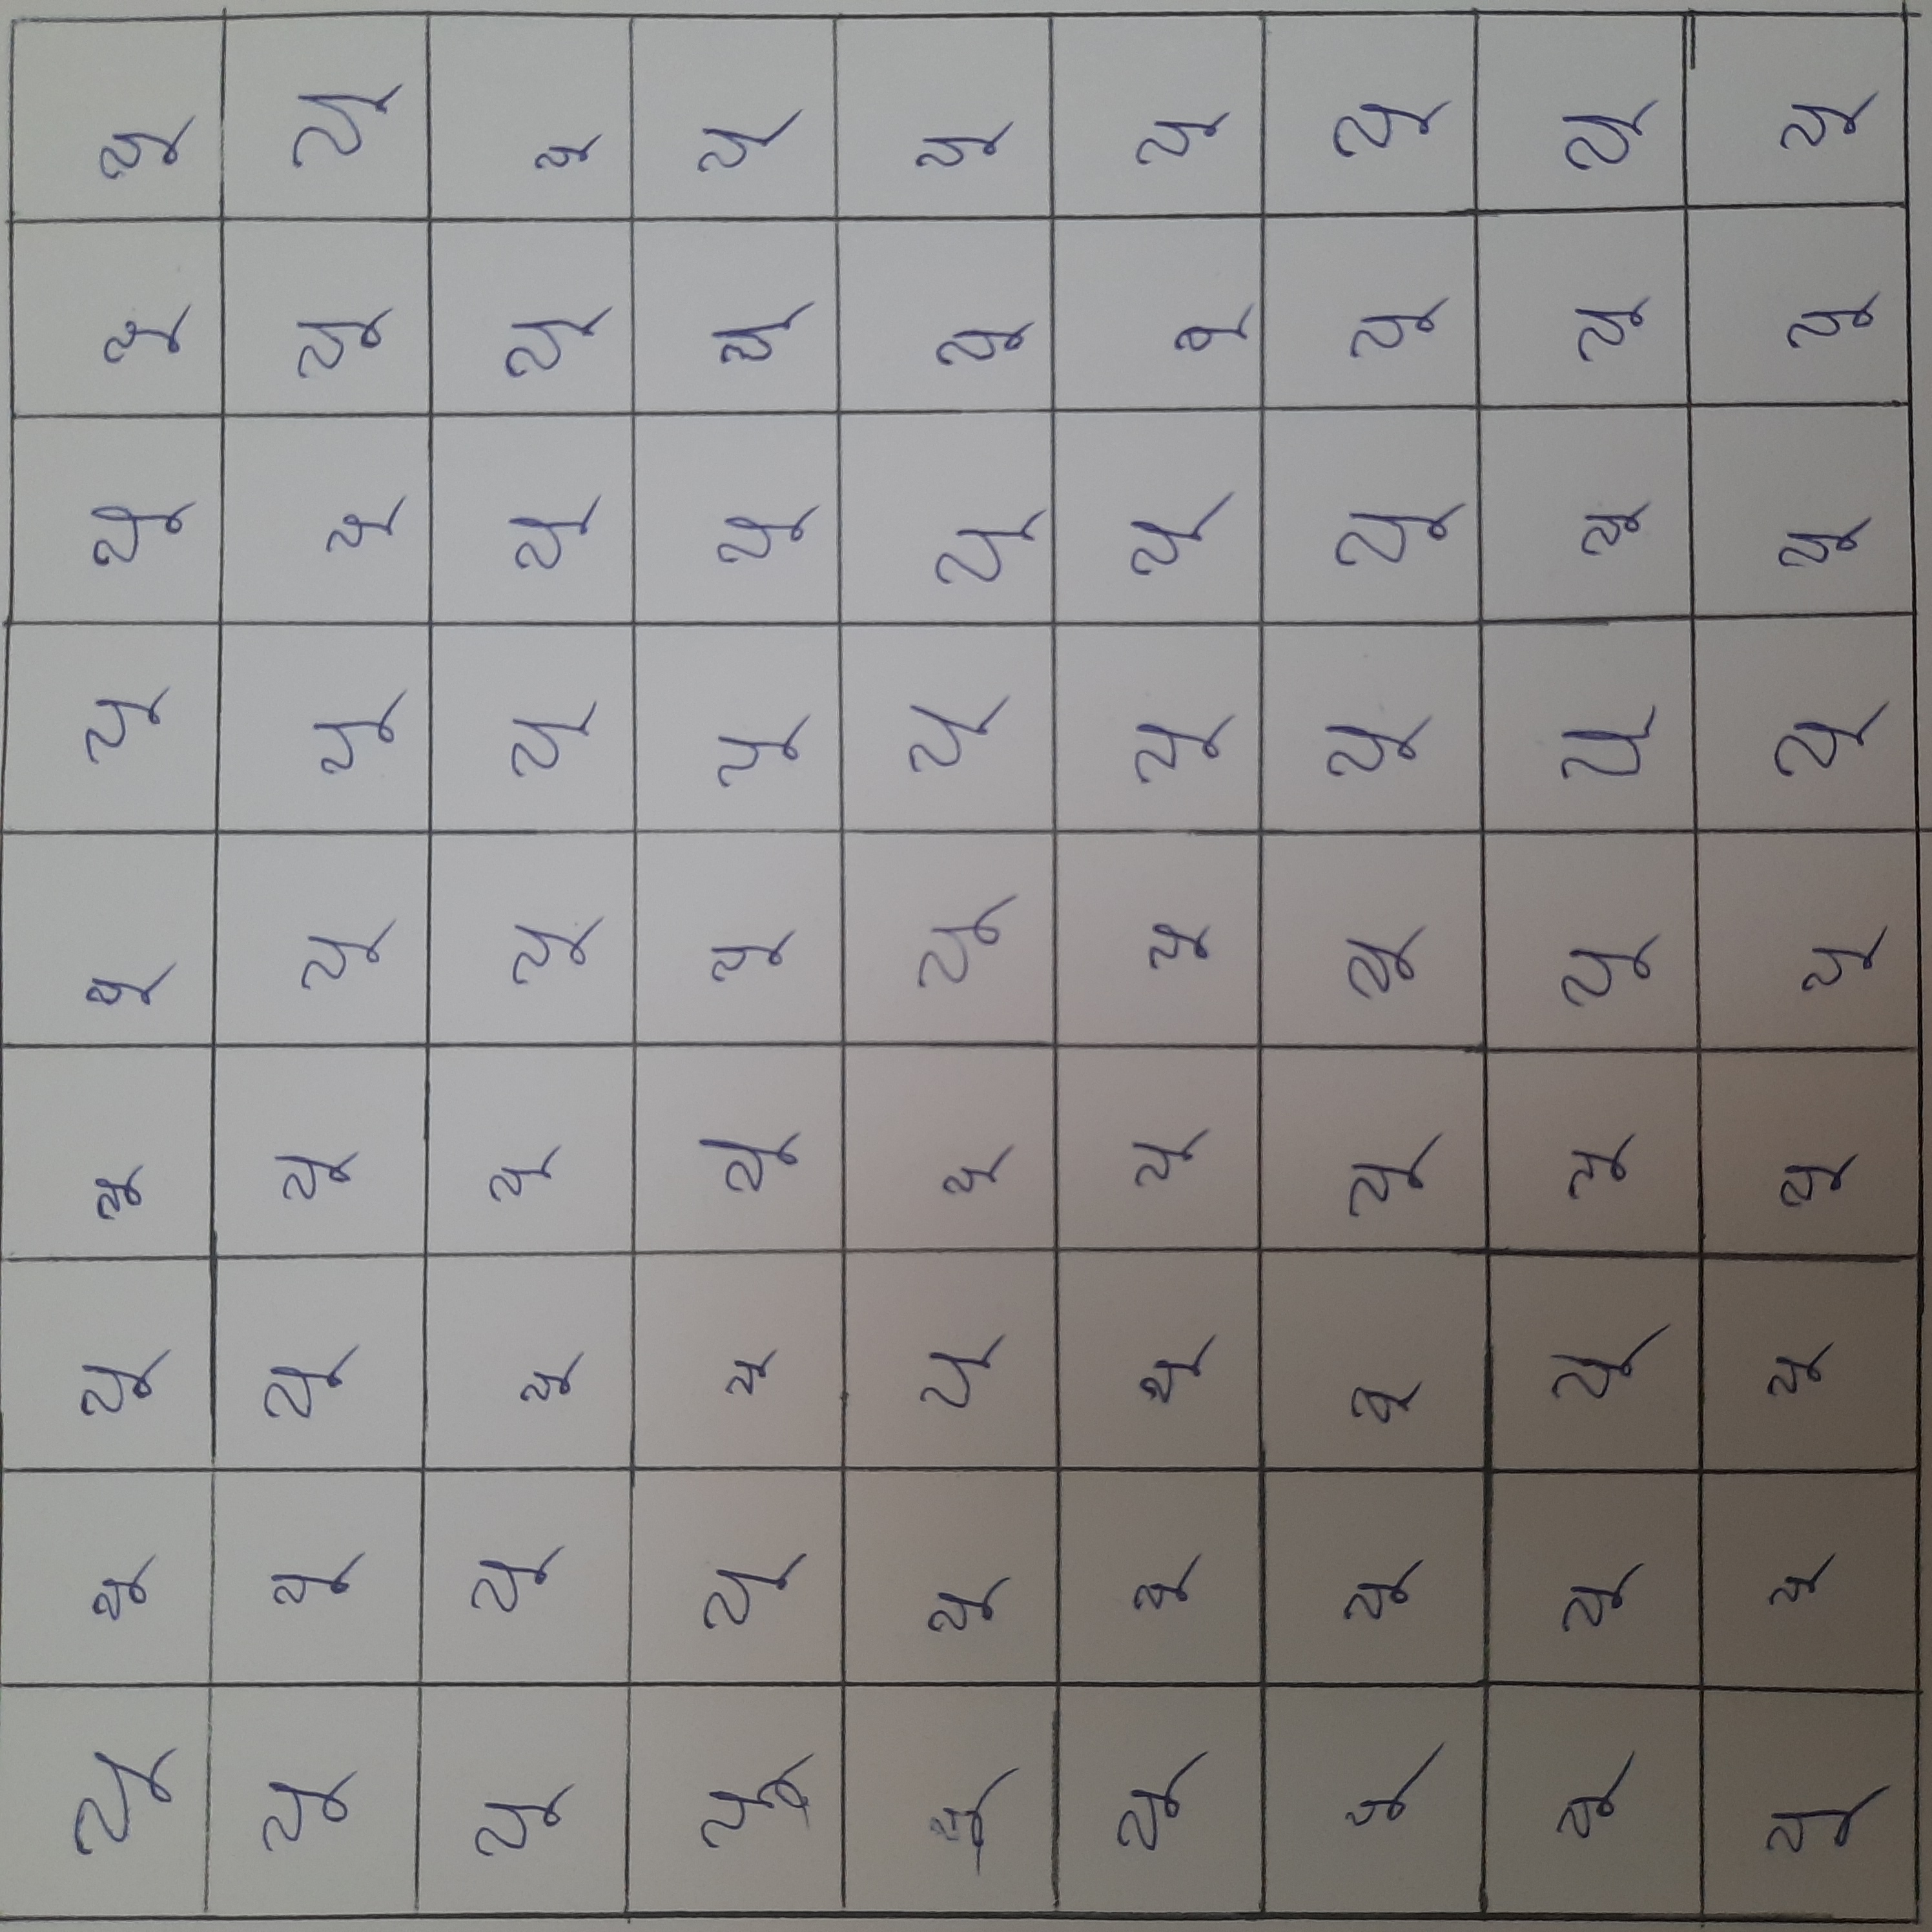 યૂ યૂ યૂ યૂ યૂ યૂ યૂ યૂ યૂ
યૂ યૂ યૂ યૂ યૂ યૂ યૂ યૂ યૂ
યૂ યૂ યૂ યૂ યૂ યૂ યૂ યૂ યૂ
યૂ યૂ યૂ યૂ યૂ યૂ યૂ યૂ યૂ
યૂ યૂ યૂ યૂ યૂ યૂ યૂ યૂ યૂ
યૂ યૂ યૂ યૂ યૂ યૂ યૂ યૂ યૂ
યૂ યૂ યૂ યૂ યૂ યૂ યૂ યૂ યૂ
યૂ યૂ યૂ યૂ યૂ યૂ યૂ યૂ યૂ
યૂ યૂ યૂ યૂ યૂ યૂ યૂ યૂ યૂ